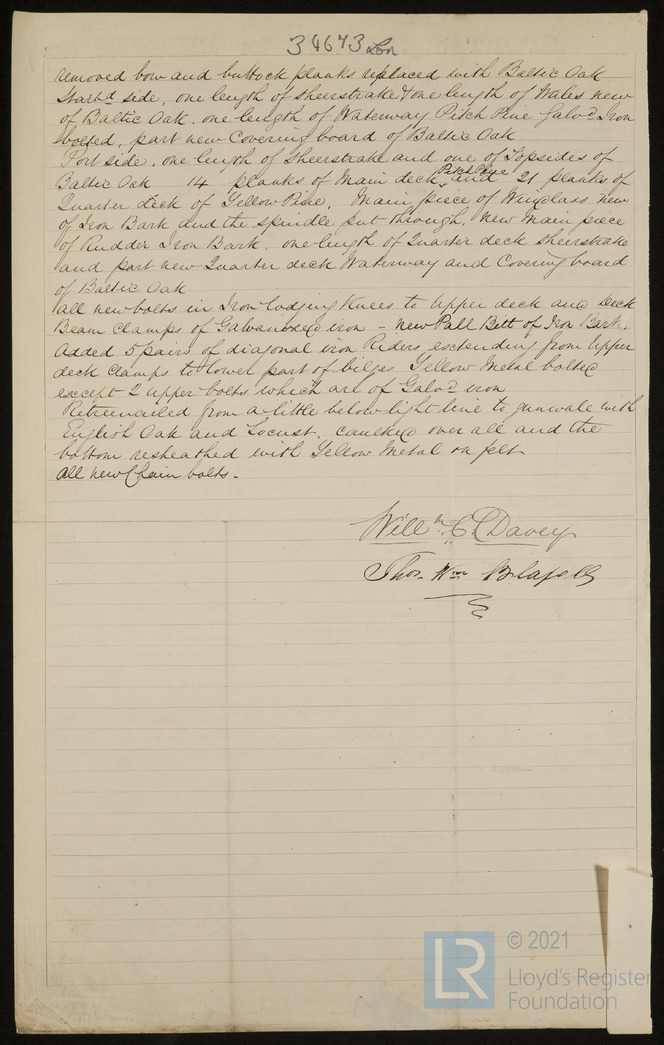 34673 Lon
removed bow and buttock planks replaced with Baltic Oak
Starbd side, one length of Sheerstrake & one length of Wales new
of Baltic Oak, one length of Waterway Pitch Pine Galvd Iron
bolted, part new Covering board of Baltic Oak
Port side, one length of Sheerstrake and one of Topsides of
Baltic Oak 14 planks of Main deck Pitch Pine and 21 planks of
Quarter deck of Yellow Pine, Main piece of Windlass new
of Iron Bark and the spindle put through, new Main piece
of Rudder Iron Bark, one length of Quarter deck Sheerstrake
and part new Quarter deck Waterway and Covering board
of Baltic Oak
all new bolts in Iron lodging Knees to Upper deck and Deck
Beam Clamps of Galvanized iron - new Pall Bitt of Iron Bark.
Added 5 pairs of diagonal iron Riders extending from Upper
deck Clamps to lower part of bilges Yellow Metal bolted
except 2 upper bolts which are of Galvd iron
Retreenailed from a little below light line to gunwale with
English Oak and Locust, caulked over all and the
bottom resheathed with Yellow Metal on felt
All new Chain bolts.
Willm C Davey
Thos. Wm
LR
© 2021
Lloyd's Register
Foundation